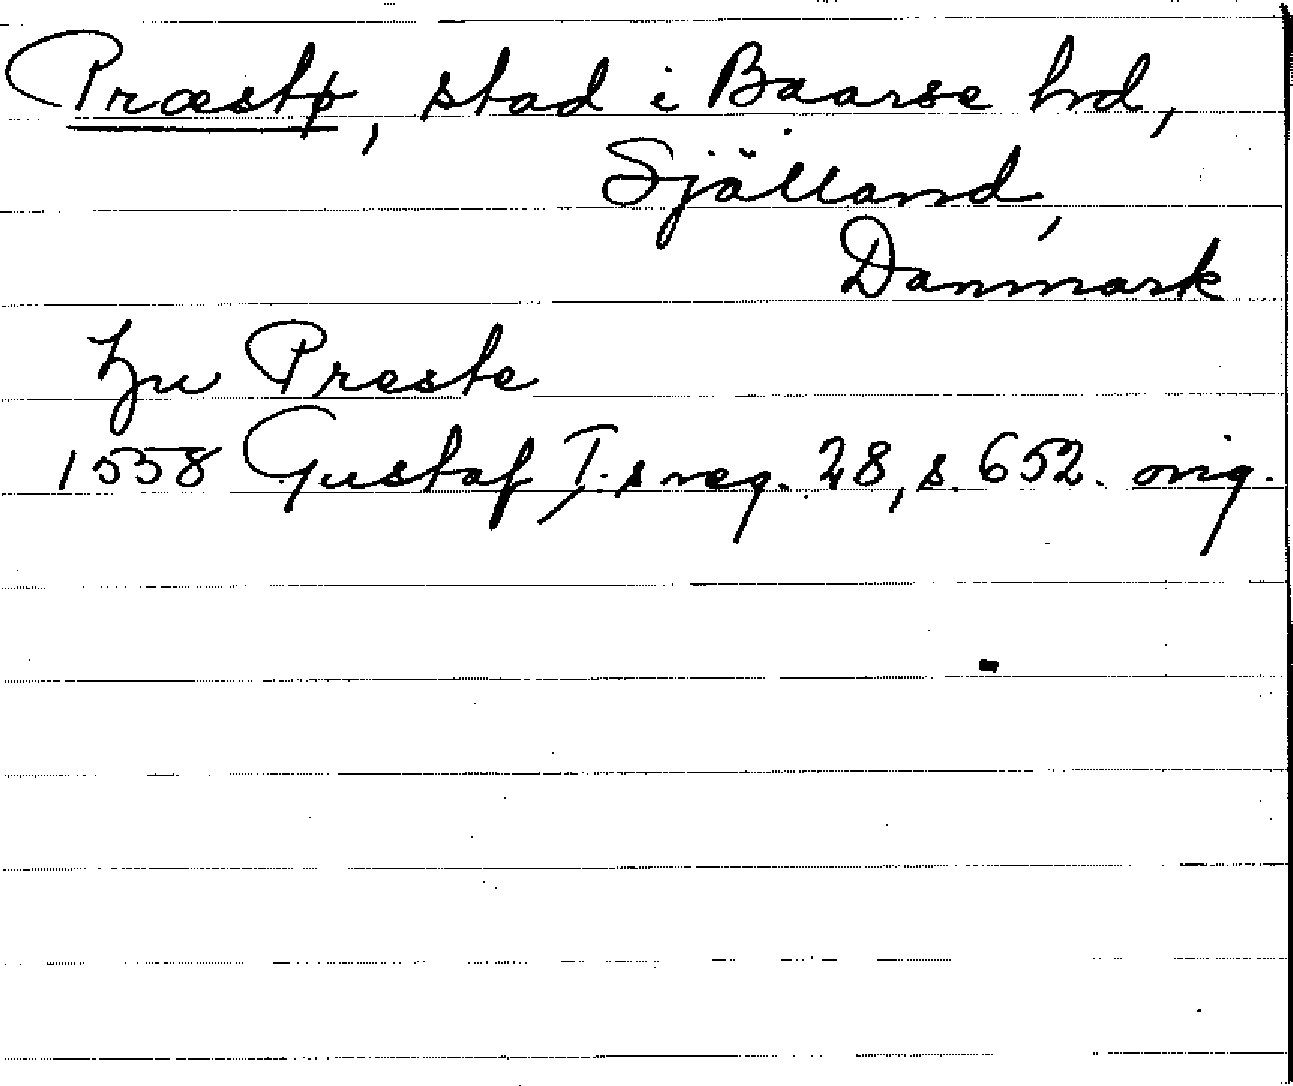 Præstø, stad i Baarse hrd,
Själland,
Danmark
Zu Preste
1558 Gustaf I.s reg. 28, s. 652. orig.